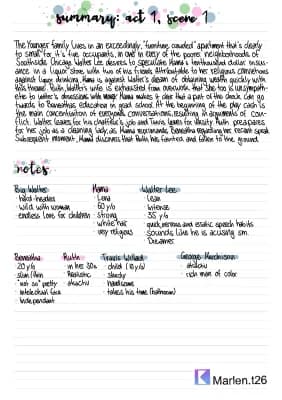 summary: act 1, scene 1
The Younger family lives in an exceedingly, "furniture crowded" apartment that's clearly
to small for it's five occupants, in one of the poorer neighborhoods of
Southside Chicago. Walter Lee desires to Mama's ten thousand dollar insur-
ance in a liquor store with two of his friends. to her religious convictions
against liquor drinking, Mama is against Walter's dream of obtaining wealth quickly with
this method. Ruth, Walter's wife is exhausted from overwork that she too is unsympath-
etic to Walter's obsessions with money. Mama makes it clear that a part of the check can go
towards to Beneatha's education in grad school. At the beginning of the play cash is
the main concentration of everyone's conversations, resulting in arguments of con-
flict. Walter leaves for his chauffeur's job and Travis leaves for Ruth prepares
for her job as a cleaning lady, as Mama Beneatha regarding her recent speak.
Subsequent moment, Mama discovers that Ruth has fainted and fallen to the ground.
notes
Big Walter
· hard-headed
· wild with woman
· endless love for children
Mama
· Lena
· 60 y/o
· strong
· white hair
· very religious
Walter Lee
· lean
· intense
· 35 y/o
· quick, nervous and erratic speech habits
· sounds like he is acusing sm.
· Dreamer
Beneatha
· 20 y/o
· slim/thin
· "not so" pretty
· intelectual face
· independant
Ruth
· in her 30s
· Realistic
Travis Willard
· child (10 y/o)
· sturdy
· handsome
· takes his time (bathroom)
George Murchison
· rich man of color
Marlen.t26